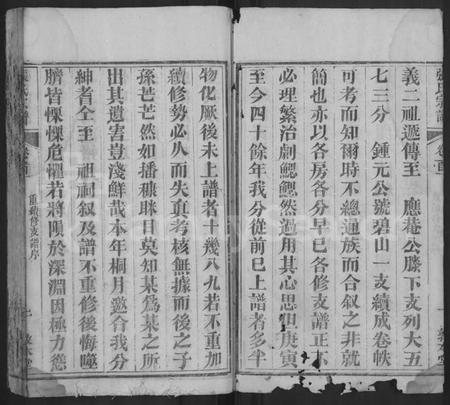 義二祖遞傳至　應菴公滕下支列大五
七三分　鍾元公號碧山一支續成卷帙
可考而知爾時不總通族而合叙之非就
簡也亦以各房各分早已各修支譜正不
必理繁治劇鰓鰓然過用其心思也庚寅
至今四十餘年我分從前已上譜者多半
物化厥後未上譜者十幾八九若不重加
續修勢必久而失真考核無據而後之子
孫芒芒然如播糠眯目莫知某為某之所
出其遺害豈淺鮮哉本年桐月邀合我分
紳耆仝至　祖祠叙及譜不重修後悔噬
臍皆慄慄危懼若將隕於深淵因極力慫
重鐫修支譜序